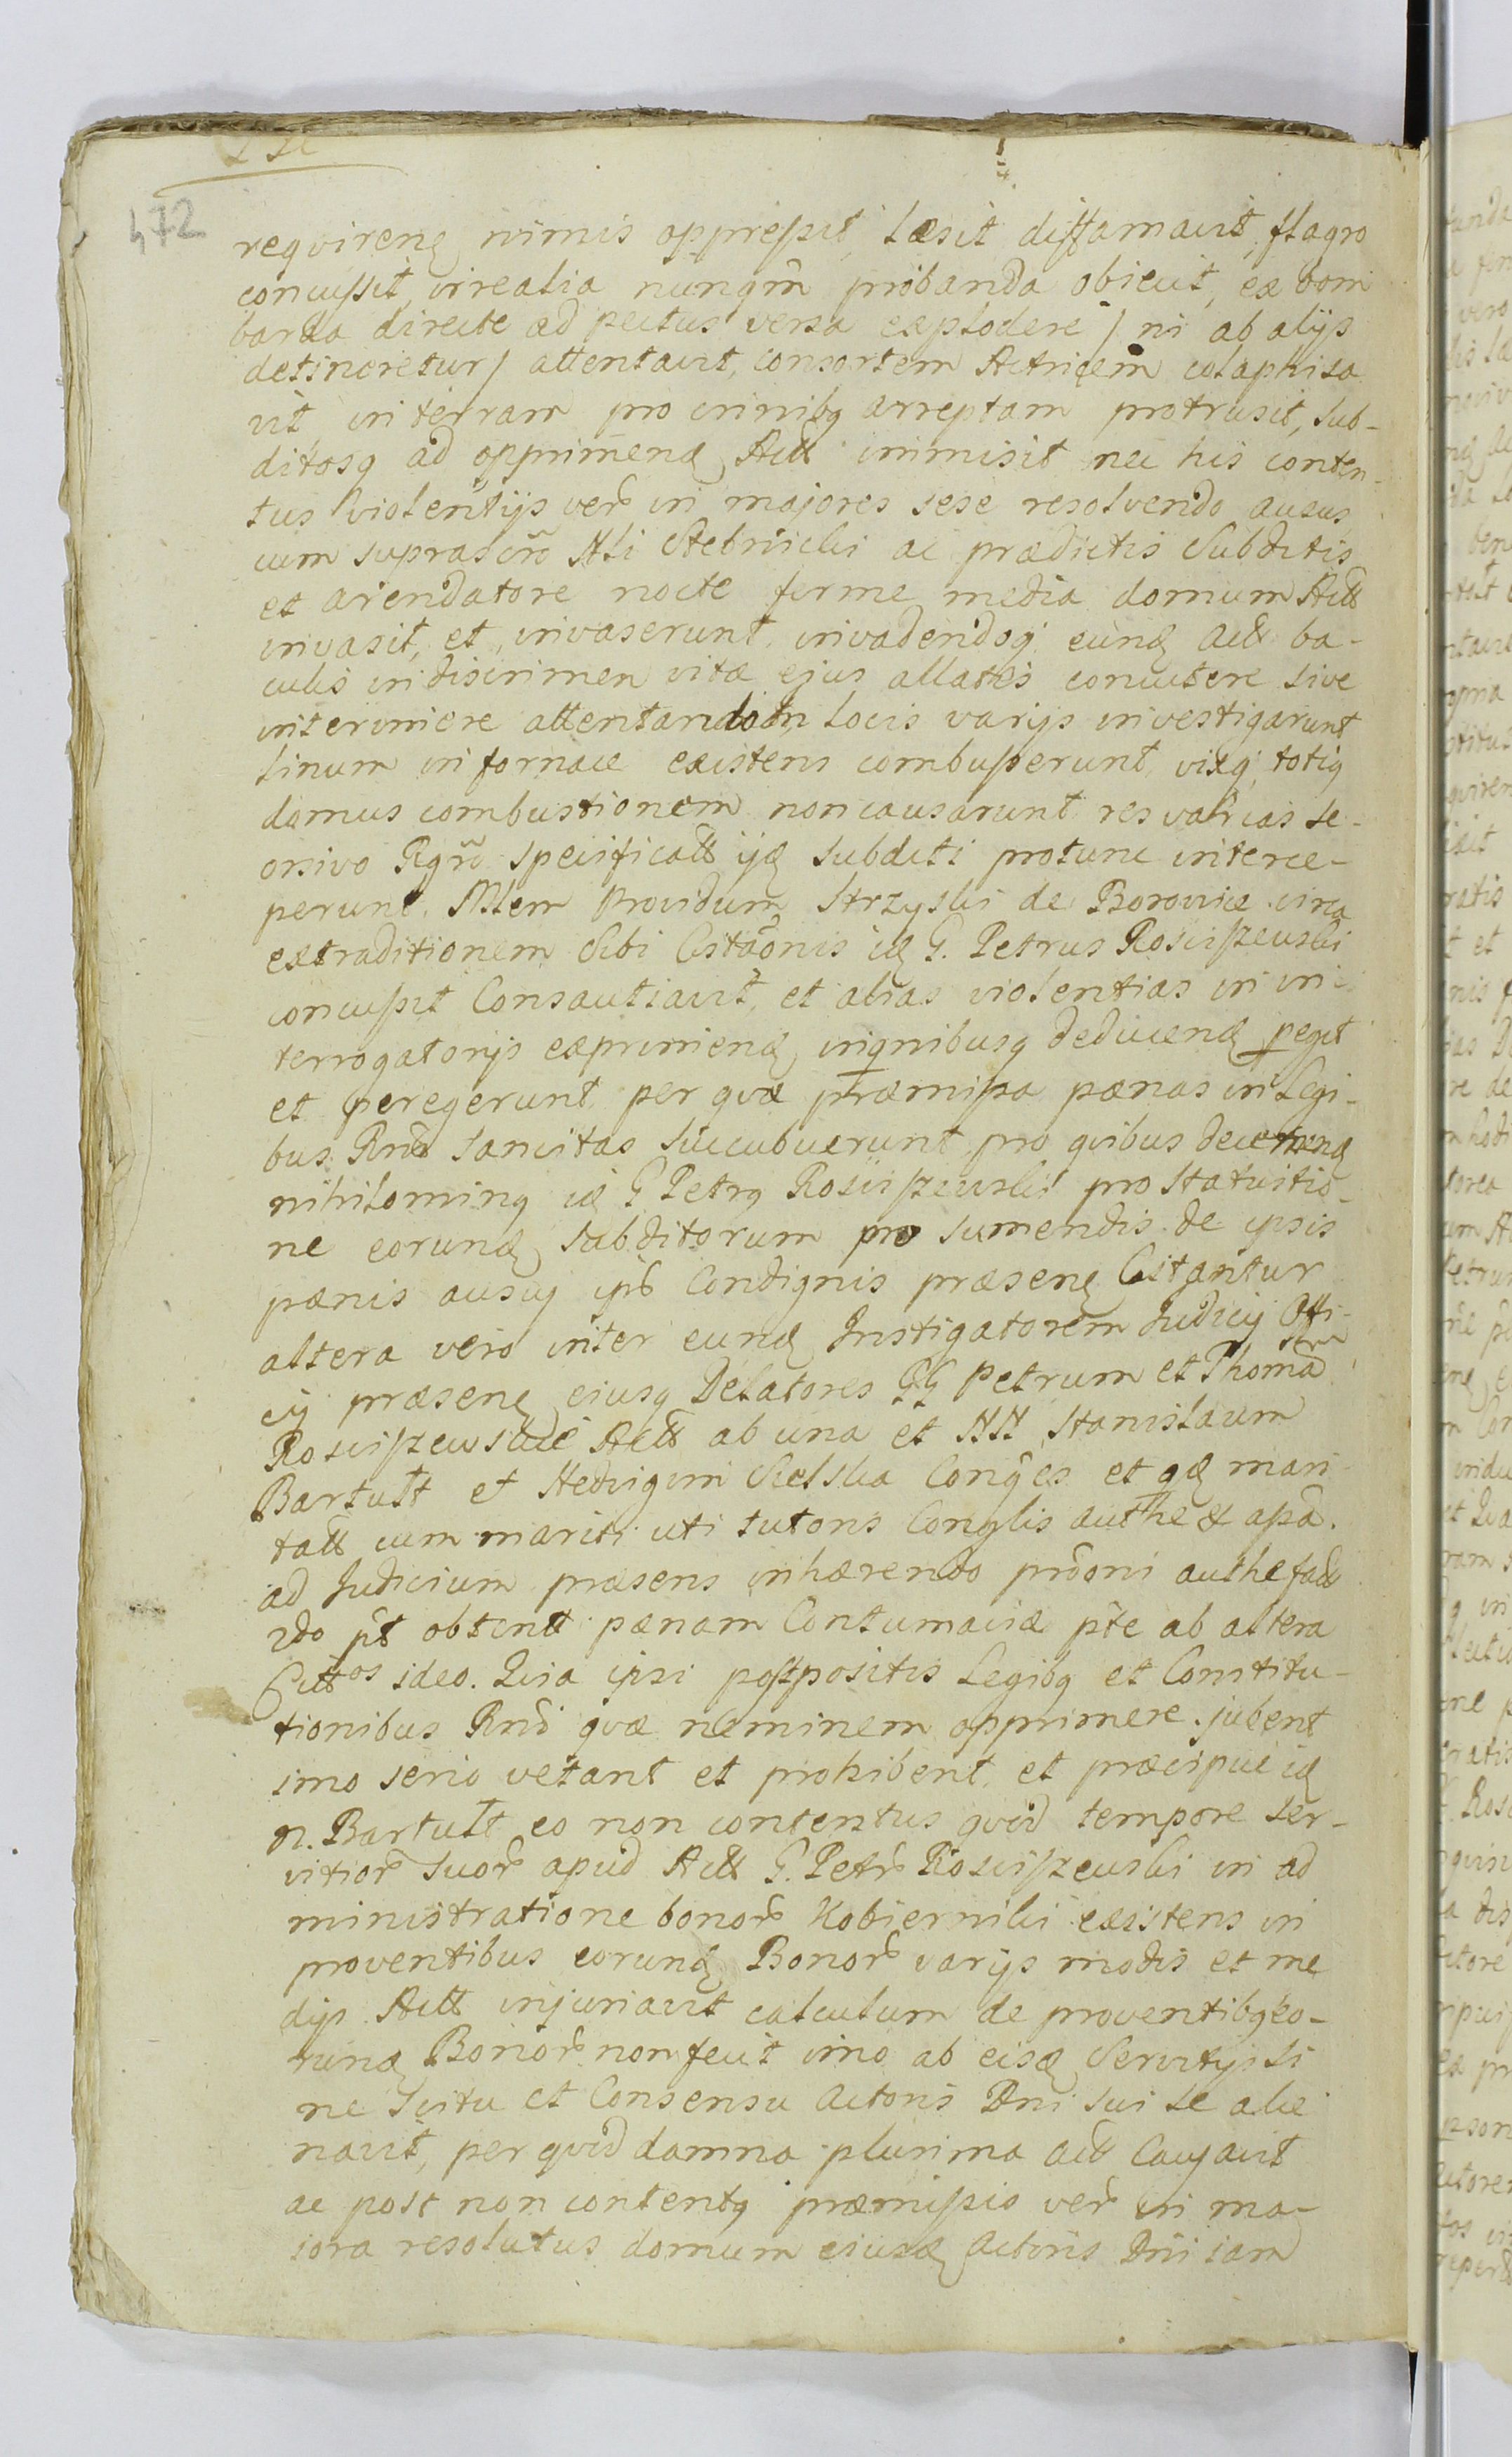 472
reqvirenꝗ nimis oppreſsit læsit diffamavit, flagro
concuſsit, irrealia nunqm̃ probanda obiecit, ex bom
barda directe ad pectus versa explodere / ni ab alijs
detineretur / attentavit, consortem Actricem colaphisa
vit in terram pro crinibꝗ arreptam protrusit, sub-
ditosꝗ ad opprimenꝗ Actt immisit nec his conten-
tus violentijs ver̃ in majores sese resolvendo ausus
cum suprascr̃o Nli Stebnicki ac prædictis Subditis
et arendatore nocte ferme media domum Actt
invasit, et invaserunt invadendoꝗ eunꝗ Actt ba-
culis in discrimen vitæ ejus allatis concutere sive
interimere attentando in locis varijs investigarunt
linum in fornace existens combuſserunt, vixꝗ totiꝗ
domus combustionem non causarunt res varias se-
orsivo Rgr̃o specificatt ijꝗ subditi protunc interce-
perunt. Item Providum Strzyski de Borowice circa
extraditionem Sibi Citãonis iꝗ G. Petrus Rosciſzewski
concuſsit Consautiavit, et alias violentias in in-
terrogatorijs exprimenꝗ, inqnibusꝗ deducenꝗ pegit
et peregerunt per qvæ præmiſsa pænas in Legi-
bus Rnĩ sancitas succubuerunt, pro qvibus decernenꝗ
nihilominꝗ iꝗ G Petrꝗ Rosciſzewski pro statuitio-
ne eorunꝗ subditorum pro sumendis de ipsis
pænis ausuꝗ ipõ Condignis præsenꝗ Citantur
altera vero inter eunꝗ Instigatorem Judicij Offi-
cij præsenꝗ eiusꝗ Delatores GG Petrum et Thomã
Rosciſzewskie Actt ab una et NN Stanislaum
Bartult et Hedvigim Sielska Conges et qꝗ mari
tatt cum mariti uti tutoris Conglis authẽ & apã.
ad Judicium præsens inhærendo prõoni authe fatt
2do pt̃ obtent pænam Contumaciæ pte ab altera
Cittos ideo. Qvia ipsi postpositis Legibꝗ et Constitu-
tionibus Rnĩ qvæ neminem opprimere jubent
imo serio vetant et prohibent, et præcipue iꝗ
n. Bartult eo non contentus qvod tempore ser-
vitior̃ suor̃ apud Actt G. Petr̃ Rosciſzewski in ad
ministratione bonor̃ Kobierniki existens in
proventibus eorunꝗ Bonor̃ varijs modis et me
dijs Actt injuriavit calculum de proventibꝗ eo-
runꝗ Bonor̃ non fecit imo ab eisꝗ Servitijs si
ne Scitu et Consensu Actoris Dni sui se alie
navit, per qvod damna plurima Actt Causavit
ac post non contentꝗ præmiſsis ver̃ in ma-
iora resolutus domum eiusꝗ Actoris Dñi iam